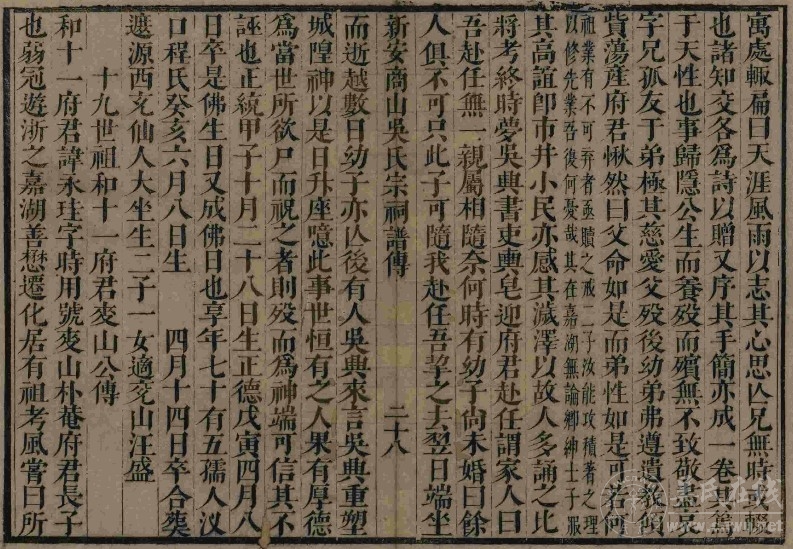 寓處輙扁曰天涯風雨以志其心思亾兄無時或輟
也諸知交各爲詩以贈又序其手簡亦成一卷其爲
于天性也事歸隱公生而養歿而殯無不致敬盡哀
字兄孤友于弟極其慈愛父歿後幼弟弗遵遺教
貲蕩產府君愀然曰父命如是而弟性如是可若何
祖業有不可弃者亟贖之戒二子汝能攻積著之理
以修先業吾復何憂哉其在嘉湖無論鄉紳士子服
其高誼卽市井小民亦感其濊澤以故人多誦之比
將考終時夢吳典書吏輿皂迎府君赴任謂家人曰
吾赴任無一親屬相隨奈何時有幼子尚未婚曰餘
人俱不可只此子可隨我赴任吾挈之去翌日端坐
新安商山吳氏宗祠譜傳 二十八
而逝越數日幼子亦亾後有人吳典來言吳典重塑
城隍神以是日升座噫此事世恒有之人果有厚德
爲當世所欲尸而祝之者則歿而爲神端可信其不
誣也正統甲子十月二十八日生正德戊寅四月八
日卒是佛生日又成佛日也享年七十有五孺人汊
口程氏癸亥六月八日生 四月十四日卒合葬
遷源西充仙人大坐生二子一女適充山汪盛
十九世祖和十一府君爽山公傳
和十一府君諱永珪字時用號爽山朴菴府君長子
也弱冠遊浙之嘉湖善懋遷化居有祖考風嘗曰所
吳氏在線